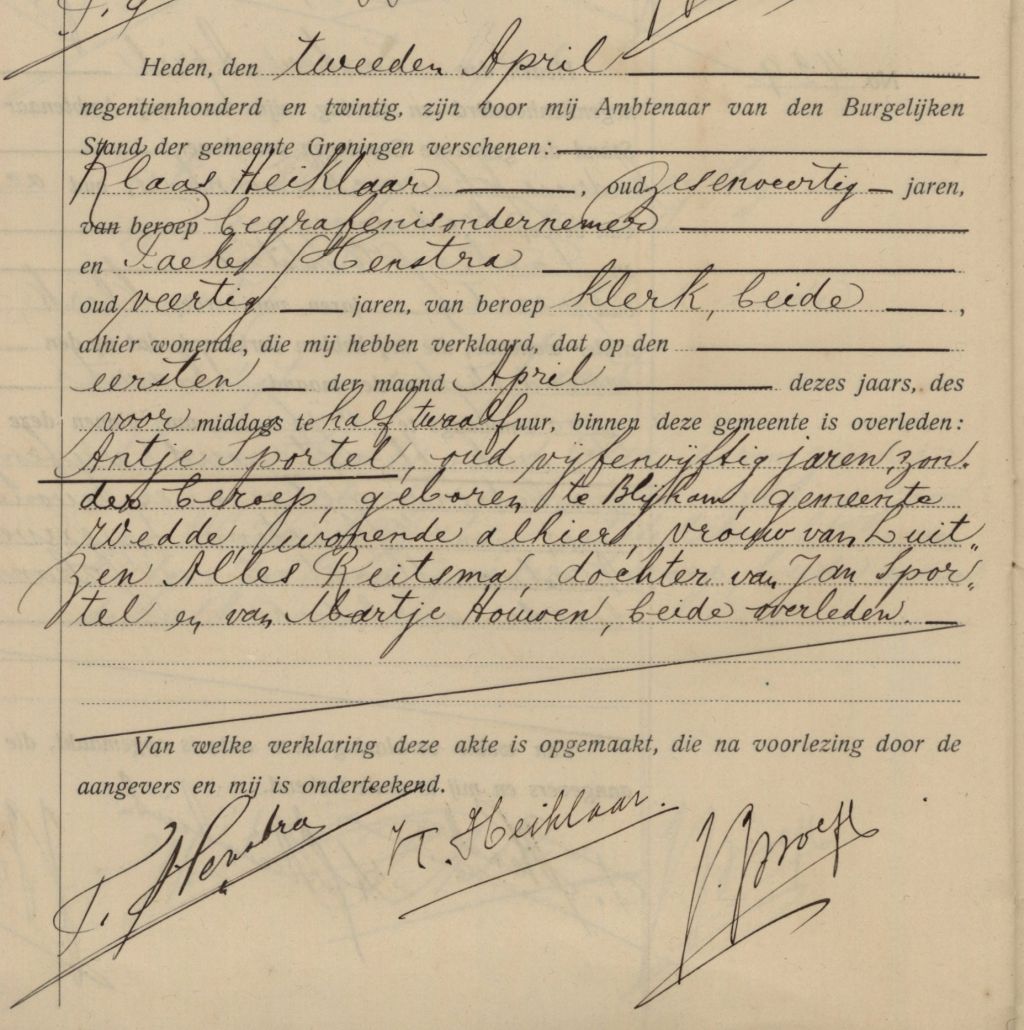 Heden, den tweeden April
negentienhonderd en twintig, zijn voor mij Ambtenaar van den Burgelijken
Stand der gemeente Groningen verschenen:
Klaas Heiklaar, oud zesenveertig jaren,
van beroep begrafenisondernemer
en Taeke Henstra
oud veertig jaren, van beroep klerk, beide,
alhier wonende, die mij hebben verklaard, dat op den
eersten der maand April dezes jaars, des
voor middags te half twaalf uur, binnen deze gemeente is overleden:
Antje Sportel, oud vijfenvijftig jaren, zon-
der beroep, geboren te Blijham, gemeente
Wedde, wonende alhier, vrouw van Luit„
zen Alles Reitsma, dochter van Jan Spor„
tel en van Martje Houwen, beide overleden.
Van welke verklaring deze akte is opgemaakt, die na voorlezing door de
aangevers en mij is onderteekend.
T. Henstra K. Heiklaar.